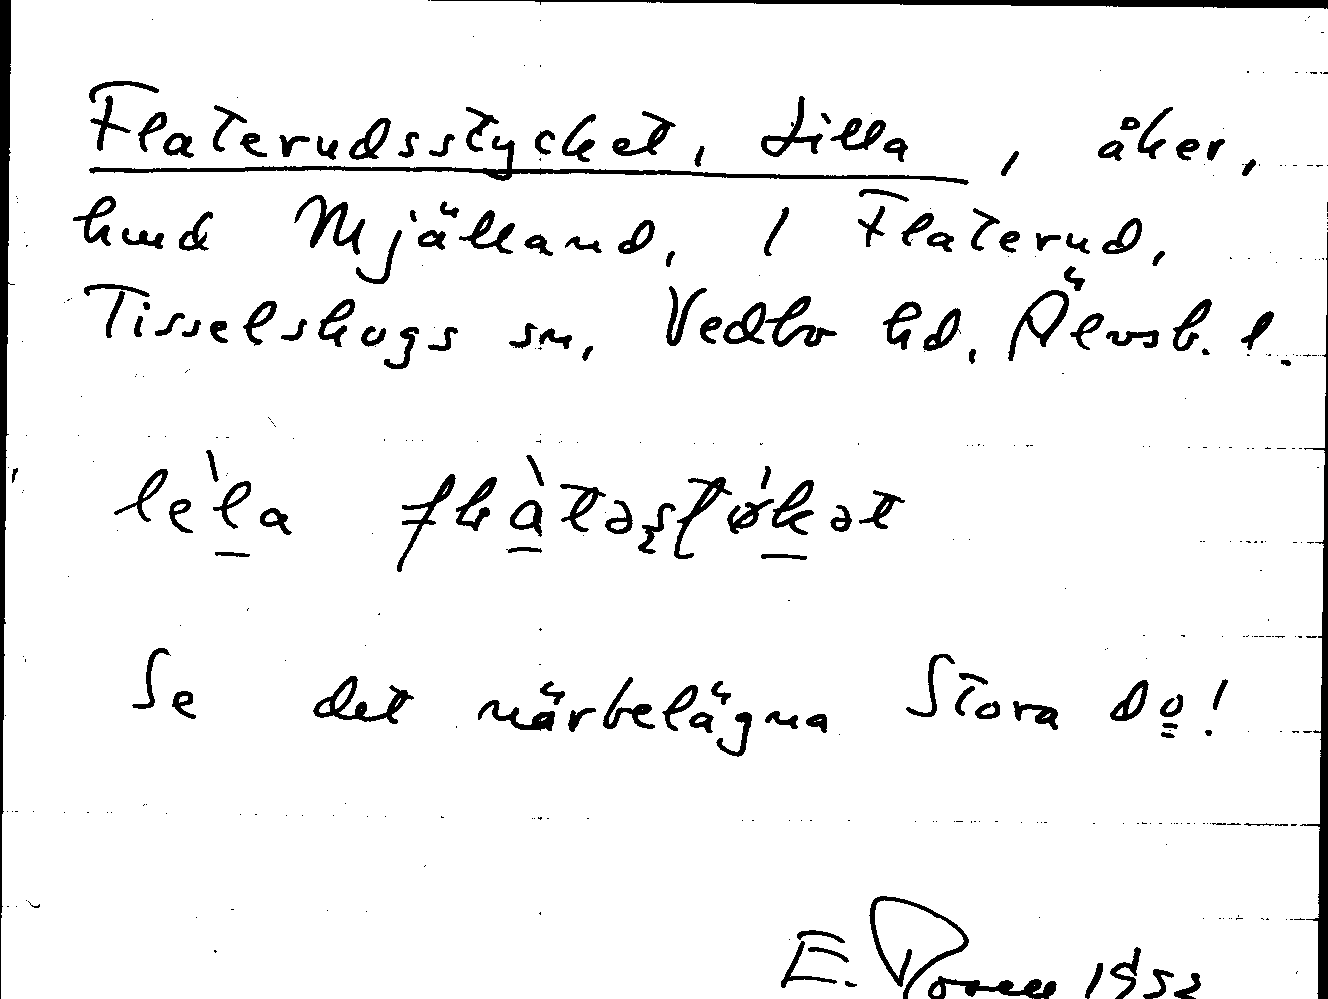 Flaterudsstycket, Lilla, åker,
hmd Mjälland, 1 Flaterud,
Tisselskogs sn, Vedbo hd. Älvsb. l.
Se det närbelägna Stora do!
E. 1952